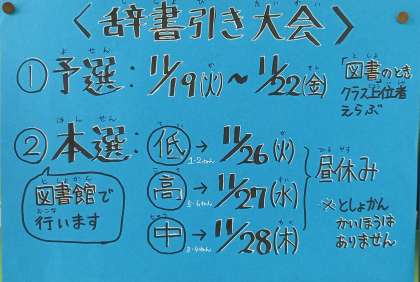 〈辞書引き大会〉
①予選：11/19(火)～11/22(金)
「図書のとき
クラス上位者
えらぶ
②本選：
低→11/26(火)
1・2ねん
高→11/27(水)
5・6ねん
中→11/28(木)
3・4ねん
昼休み
図書館で
行います
※としょかん
かいほうは
ありません